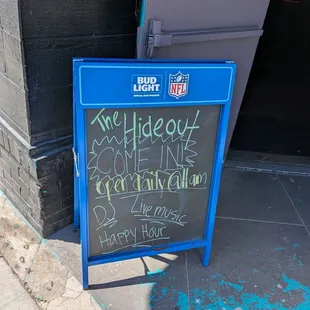 BUD LIGHT
NFL
The Hideout
COME IN!
open daily @ 11am
DJ Live music
Happy Hour